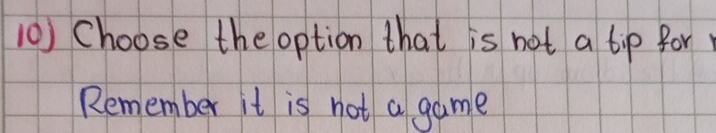 10) Choose the option that is not a tip for
Remember it is not a game